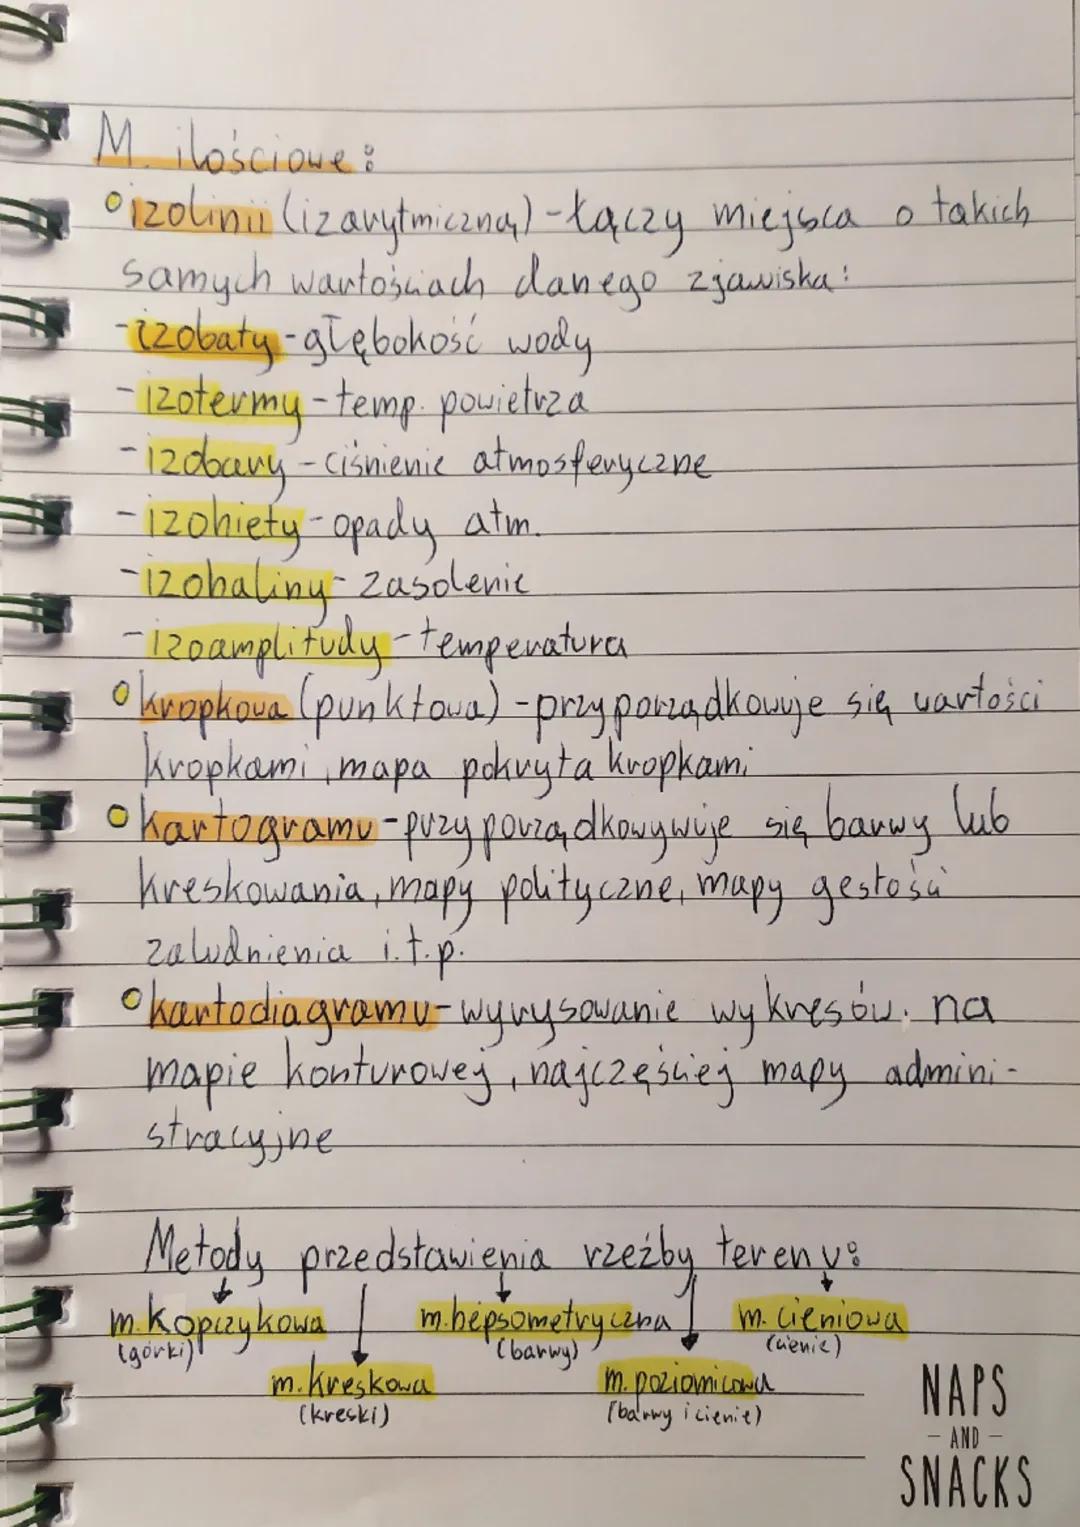 M. ilościowe:
izolinii (izarytmiczna) - łączy miejsca o takich
samych wartościach danego zjawiska:
- izobaty - głębokość wody
- izotermy - temp. powietrza
- izobary - ciśnienie atmosferyczne
- izohiety - opady atm.
- izohaliny - zasolenie
- izoamplitudy - temperatura
kropkowa (punktowa) - przyporządkowuje się wartości
kropkami, mapa pokryta kropkami
kartogramu - przyporządkowywuje się barwy lub
kreskowania, mapy polityczne, mapy gęstości
zaludnienia i.t.p.
kartodiagramu - wyrysowanie wykresów. na
mapie konturowej, najczęściej mapy admini-
stracyjne
Metody przedstawienia rzeźby terenu:
m. kopczykowa m. hipsometryczna m. cieniowa
(górki) (barwy) (cienie)
m. kreskowa m. poziomicowa
(kreski) (barwy i cienie)
NAPS
- AND -
SNACKS